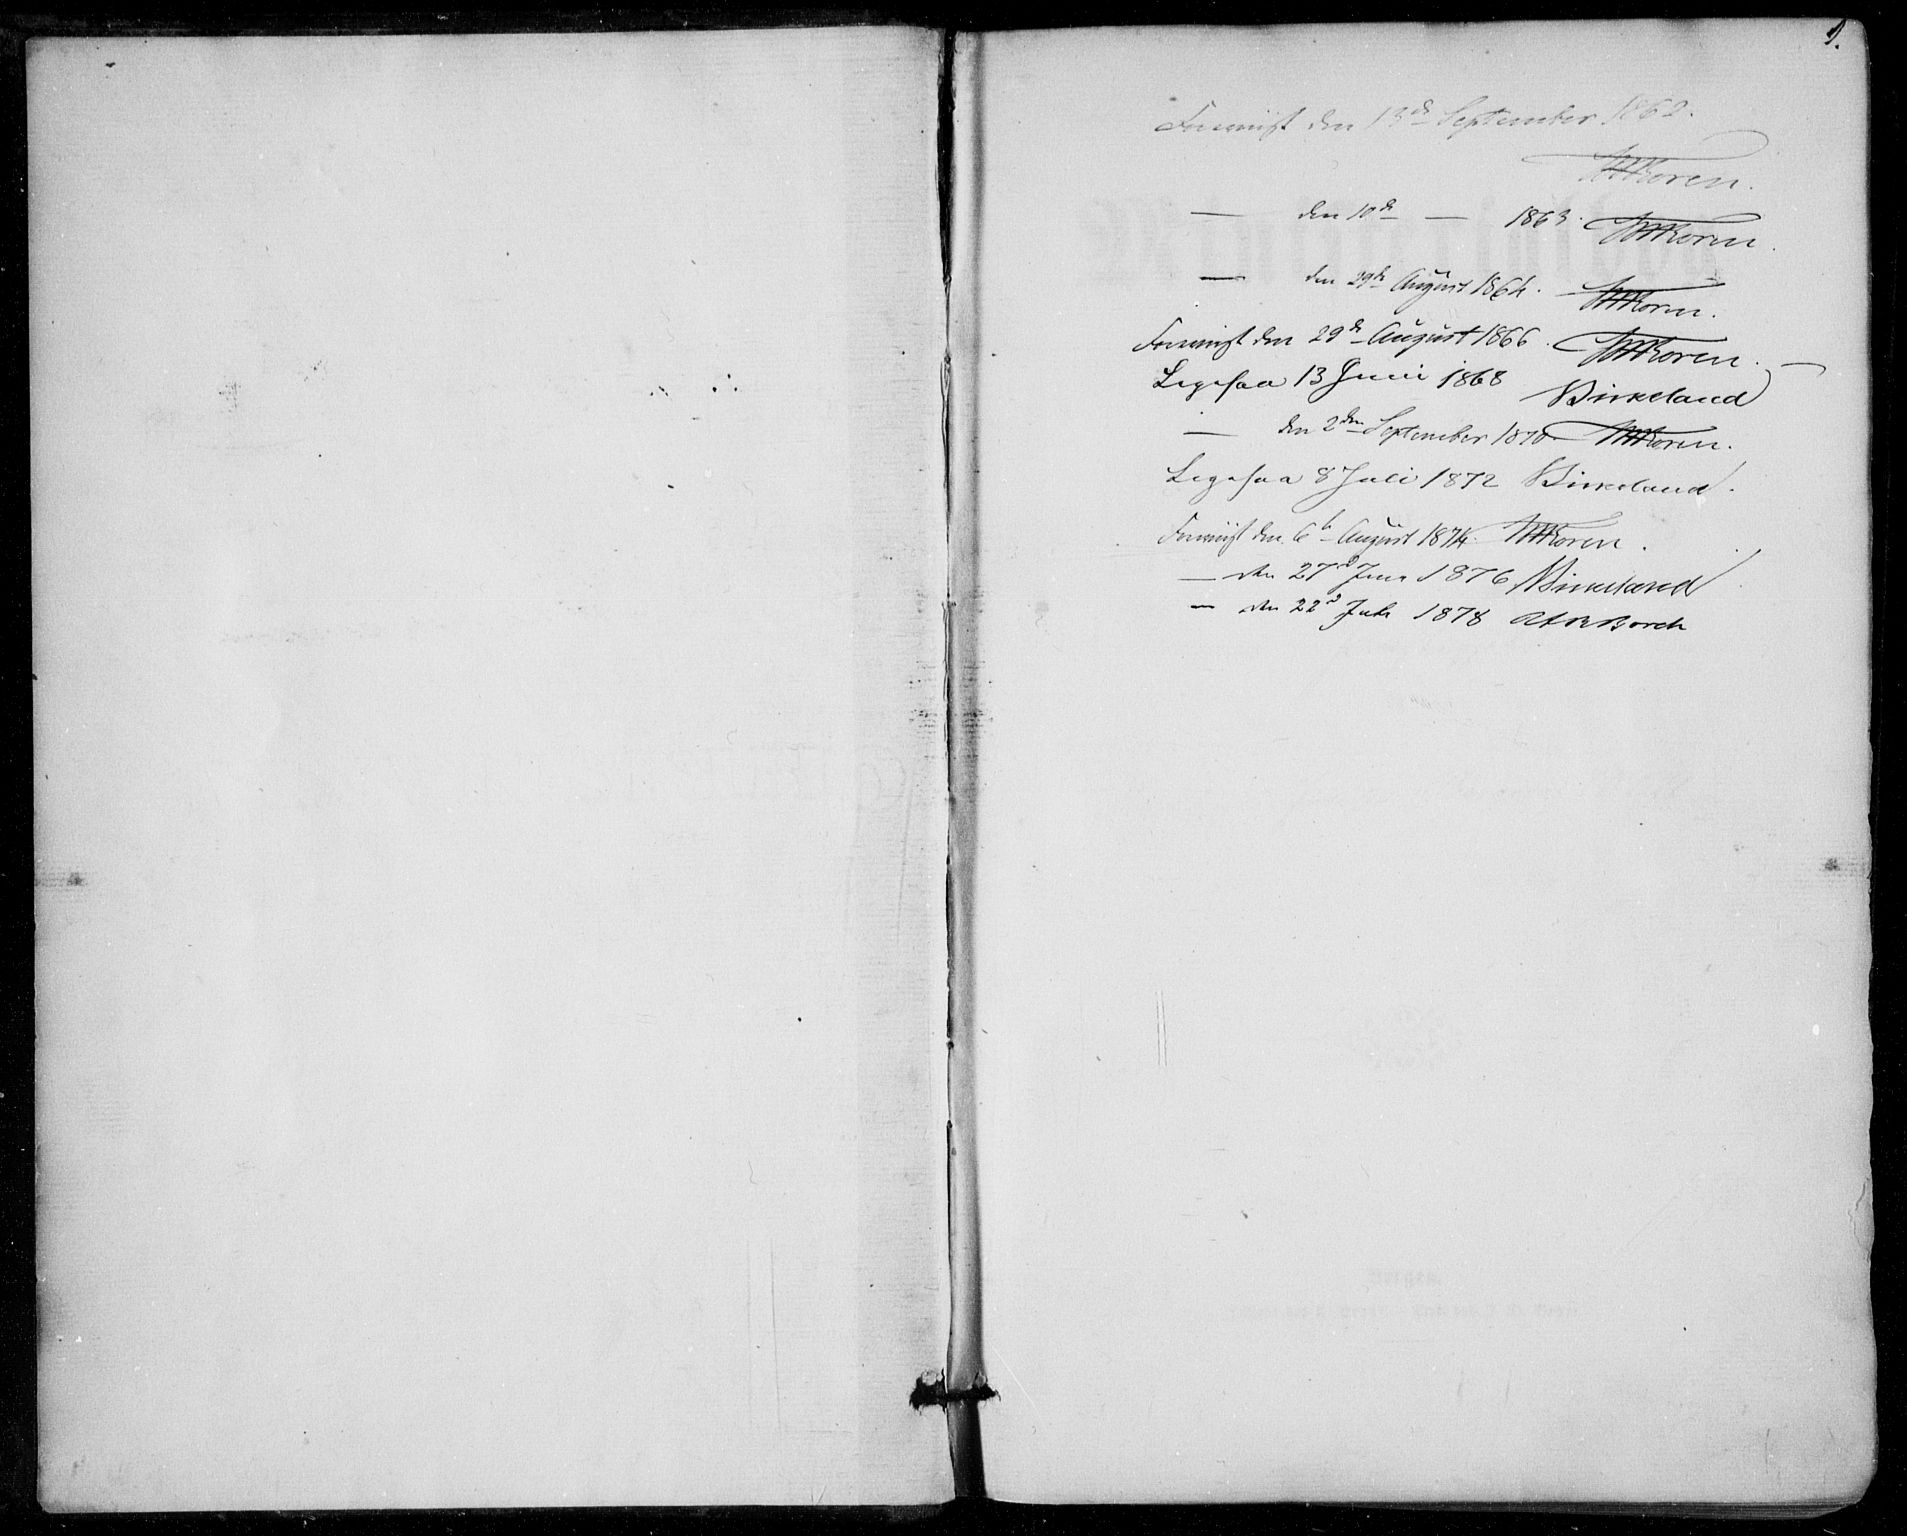 1.
Foreviist den 13de September 1862.
Koren.
— den 10de — 1863. Koren.
— den 29de August 1864. Koren.
Foreviist den 29de August 1866. Koren. —
Ligesaa 13 Juni 1868 Birkeland
— den 2den September 1870. Koren.
Ligesaa 8 Juli 1872 Birkeland.
Foreviist den 6te August 1874. Koren.
— den 27d Juni 1876 Birkeland
— den 22d Juli 1878 Borch